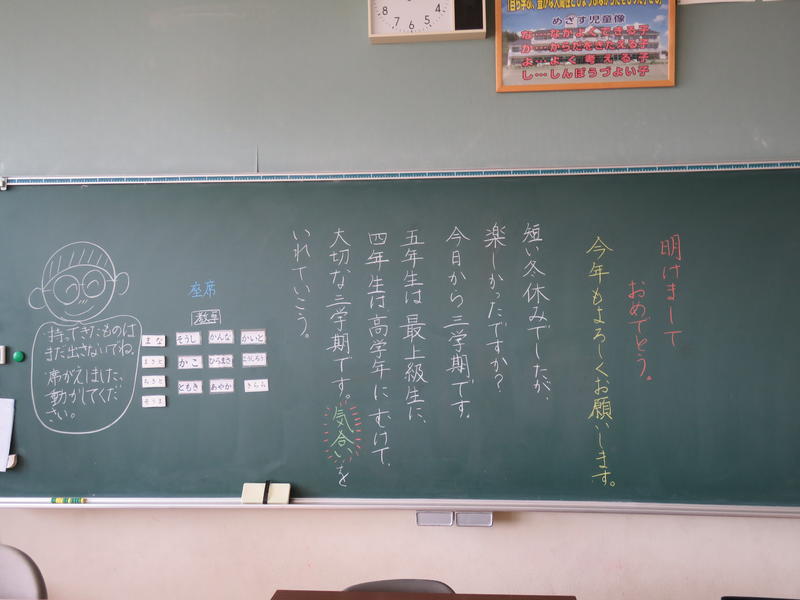 めざす児童像
な…なかよくできる子
か…からだをきたえる子
よ…よく考える子
し…しんぼうづよい子
明けまして
おめでとう。
今年もよろしくお願いします。
短い冬休みでしたが、
楽しかったですか?
今日から三学期です。
五年生は最上級生に、
四年生は高学年にむけて、
大切な三学期です。気合いを
いれていこう。
座席
教卓
まな そうし かんな かいと
まさと かこ ひろまさ こうしろう
ともき あやか きらら
そうま
持ってきたものは
まだ出さないでね。
席がえしました、
動かしてくだ
さい。
8 7 6 5 4